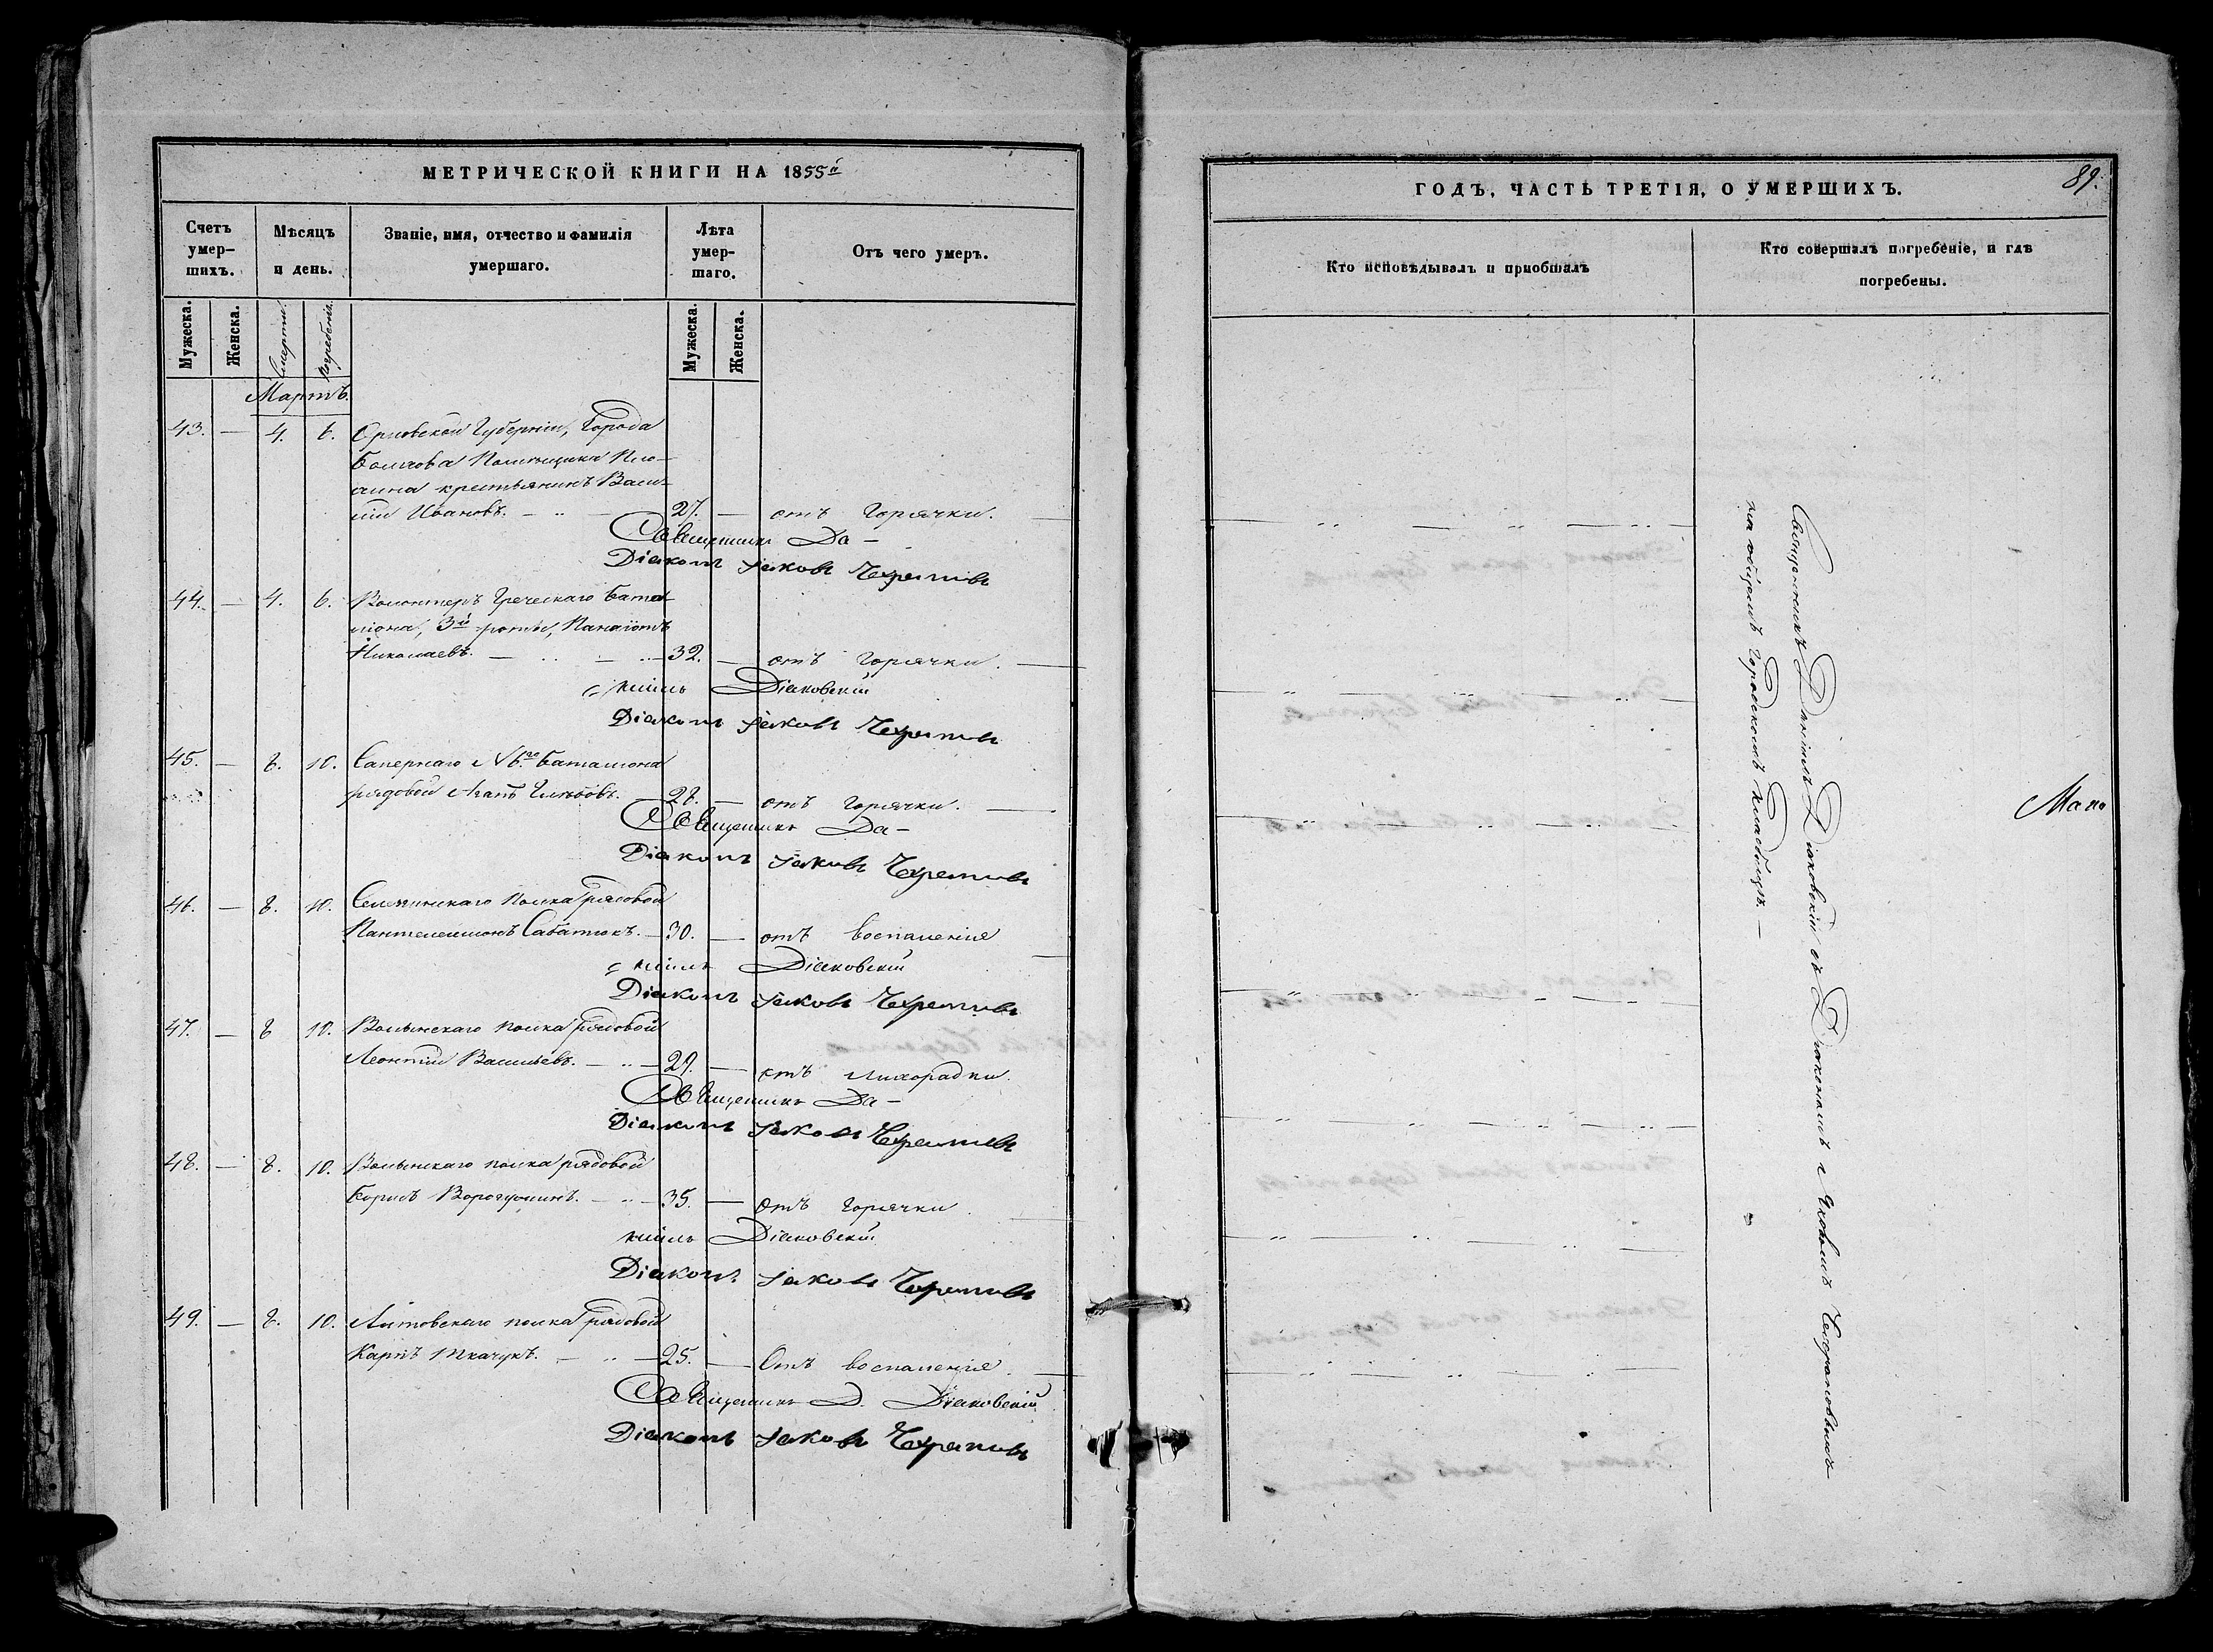 МЕТРИЧЕСКОЙ КНИГИ НА 1855й
Счетъ умер-шихъ.
Мѣсяцъ и день.
Званіе, имя, отчество и фамилія умершаго.
Лѣта умер-шаго.
Отъ чего умеръ.
Мужеска.
Женска.
Смерти.
Погребенія.
Мужеска.
Женска.
Мартъ.
43. — 4. 6. Орловской Губерніи, Города
Болхова Помѣщика
крестьянинъ Васи-
лій Ивановъ. 27. — отъ Горячки.
Священникъ Да-
Діаконъ Іаковъ
44. — 4. 6. Волонтеръ Греческаго бата-
ліона, 3й роты, Панаіотъ
Николаевъ. 32. — отъ Горячки.
ніилъ Діаковскій
Діаконъ Іаковъ
45. — 8. 10. Сапернаго № 6го баталіона
рядовой Агапъ Глѣбовъ. 28. — отъ горячки.
Священникъ Да-
Діаконъ Іаковъ
46. — 8. 10. Селенгинскаго полка рядовой
Пантелеимонъ Сабатюкъ. 30. — отъ воспаленія
ніилъ Діаковскій
Діаконъ Іаковъ
47. — 8 10. Волынскаго полка рядовой
Леонтій Васильевъ. 29. — отъ лихорадки.
Священникъ Да-
Діаконъ Іаковъ
48. — 8. 10. Волынскаго полка рядовой
Борисъ 35. — отъ горячки.
ніилъ Діаковскій
Діаконъ Іаковъ
49. — 8. 10. Литовскаго полка рядовой
Карпъ Ткачукъ. 25. — Отъ воспаленія.
Священникъ Д. Діаковскій
Діаконъ Іаковъ
ГОДЪ, ЧАСТЬ ТРЕТІЯ, О УМЕРШИХЪ.
89.
Кто исповѣдывалъ и приобщалъ
Кто совершалъ погребеніе, и гдѣ погребены.
Священникъ Даніилъ Діаковскій съ Діакономъ Яковомъ
на общемъ Городскомъ кладбищѣ. —